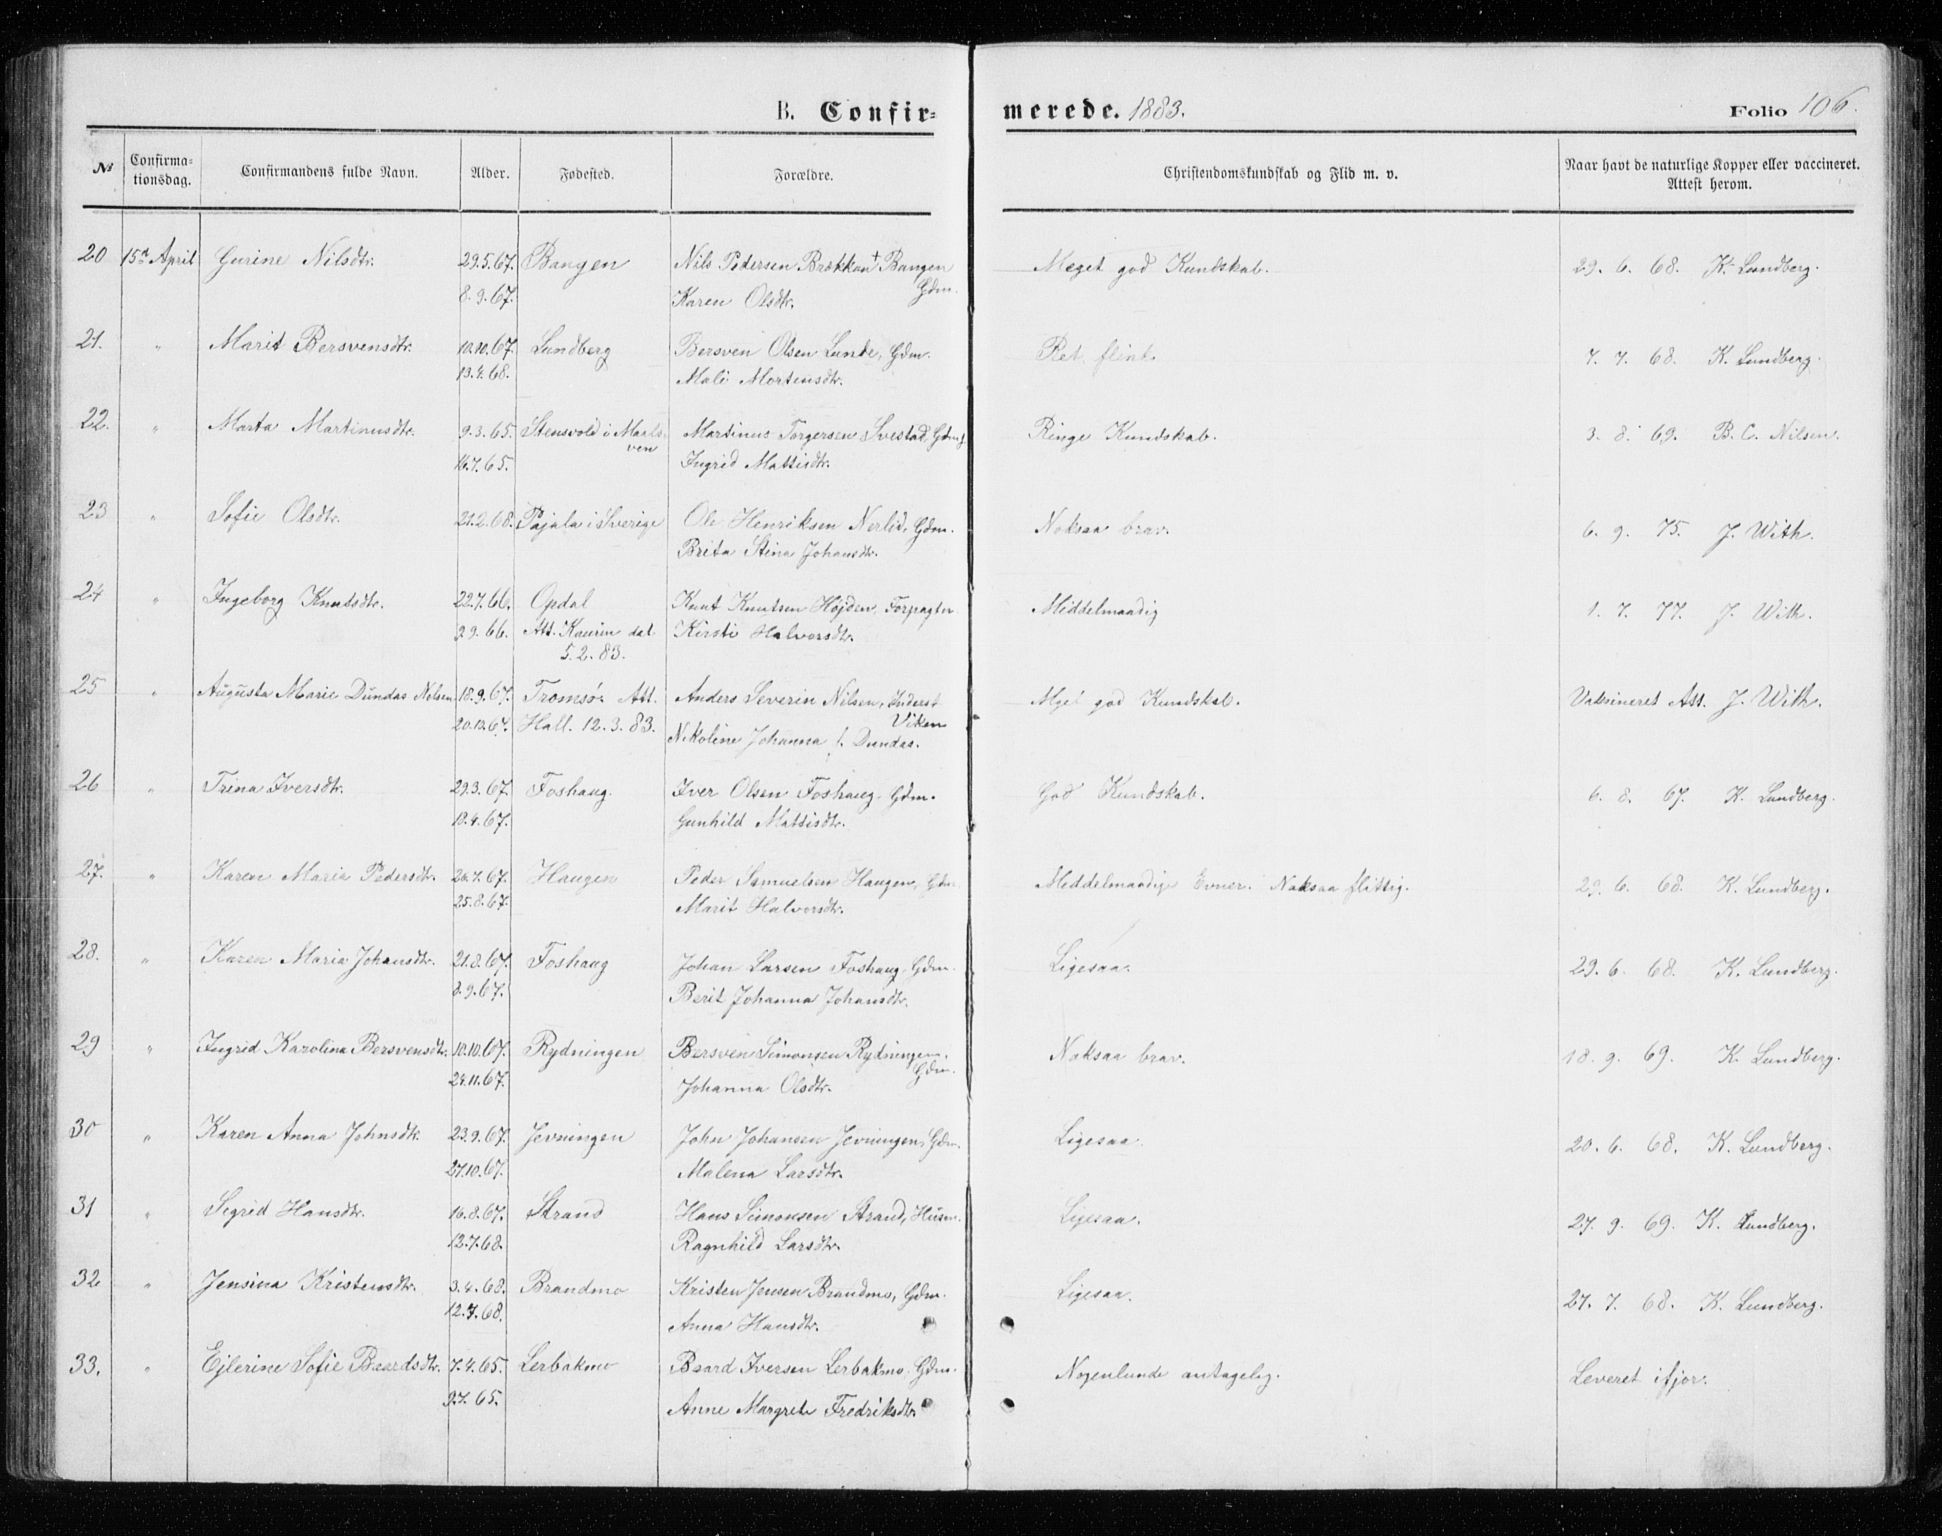 B. Confir= merede. 1883. Folio 106.
№ Confirma=tionsdag. Confirmandens fulde Navn. Alder. Fødested. Forældre. Christendomskundskab og Flid m. v. Naar havt de naturlige Kopper eller vaccineret. Attest herom.
20 15de April Gurine Nilsdtr. 29.5.67. Bangen Nils Pedersen Brækkan + Bangen Meget god Kundskab. 29. 6. 68. K. Lundberg.
8.9.67. Karen Olsdtr. Gdm.
21. " Marit Bersvensdtr. 10.10.67. Lundberg Bersven Olsen Lunde, Gdm. Ret flink. 7. 7. 68. K. Lundberg.
13.4.68. Mali Mortensdtr.
22. " Marta Martinusdtr. 9.3.65. Stensvold i Maalsven Martinus Torgersen Svestad, Gdm. Ringe Kundskab. 3. 8. 69. B. C. Nilsen.
16.7.65. Ingrid Mattisdtr.
23 " Sofie Olsdtr. 21.2.68. Pajala i Sverige Ole Henriksen Nerlid, Gdm. Noksaa brav. 6. 9. 75. J. With.
Brita Stina Johansdtr.
24 " Ingeborg Knutsdtr. 22.7.66. Opdal Knut Knutsen Højden, Forpagter Middelmaadig 1. 7. 77. J. With.
9.9.66. Att. Kaurin dat Kirsti Halvorsdtr.
5.2.83.
25 " Augusta Marie Dundas Nilsen 18.9.67. Tromsø. Att. Anders Severin Nilsen, Inderst Meget god Kundskab. Vaksineret Att. J. With.
20.12.67. Hall. 12.3.83. Viken
Nikoline Johanna f. Dundas.
26 " Trina Iversdtr. 29.3.67. Foshaug. Iver Olsen Foshaug. Gdm. God Kundskab. 6. 8. 67. K. Lundberg.
18.4.67. Gunhild Mattisdtr.
27. " Karen Maria Pedersdtr. 20.7.67. Haugen Peder Samuelsen Haugen, Gdm. Middelmaadige Evner. Noksaa flittig. 29. 6. 68. K. Lundberg.
25.8.67. Marit Halvorsdtr.
28. " Karen Maria Johansdtr. 21.8.67. Foshaug Johan Larsen Foshaug, Gdm. Ligesaa. 29. 6. 68. K. Lundberg.
8.9.67. Berit Johanna Johansdtr.
29 " Ingrid Karolina Bersvensdtr. 10.10.67. Rydningen Bersven Simonsen Rydningen. Noksaa brav. 18. 9. 69. K. Lundberg.
24.11.67. Gdm.
Johanna Olsdtr.
30 " Karen Anna Johnsdtr. 23.9.67. Jevningen John Johansen Jevningen, Gdm. Ligesaa. 20. 6. 68. K. Lundberg.
27.10.67. Malena Larsdtr.
31 " Sigrid Hansdtr. 16.8.67. Strand Hans Simonsen Strand, Husm. Ligesaa. 27. 9. 69. K. Lundberg.
12.7.68. Ragnhild Larsdtr.
32 " Jensina Kristensdtr. 3.4.68. Brandmo Kristen Jensen Brandmo, Gdm. Ligesaa. 27. 7. 68. K. Lundberg.
12.7.68. Anna Hansdtr.
33. " Ejlerine Sofie Baardsdtr. 7.4.65. Lerbakmo Baard Iversen Lerbakmo. Gdm. Nogenlunde antagelig. Leveret ifjor.
9.7.65. Anne Margrete Fredriksdtr.